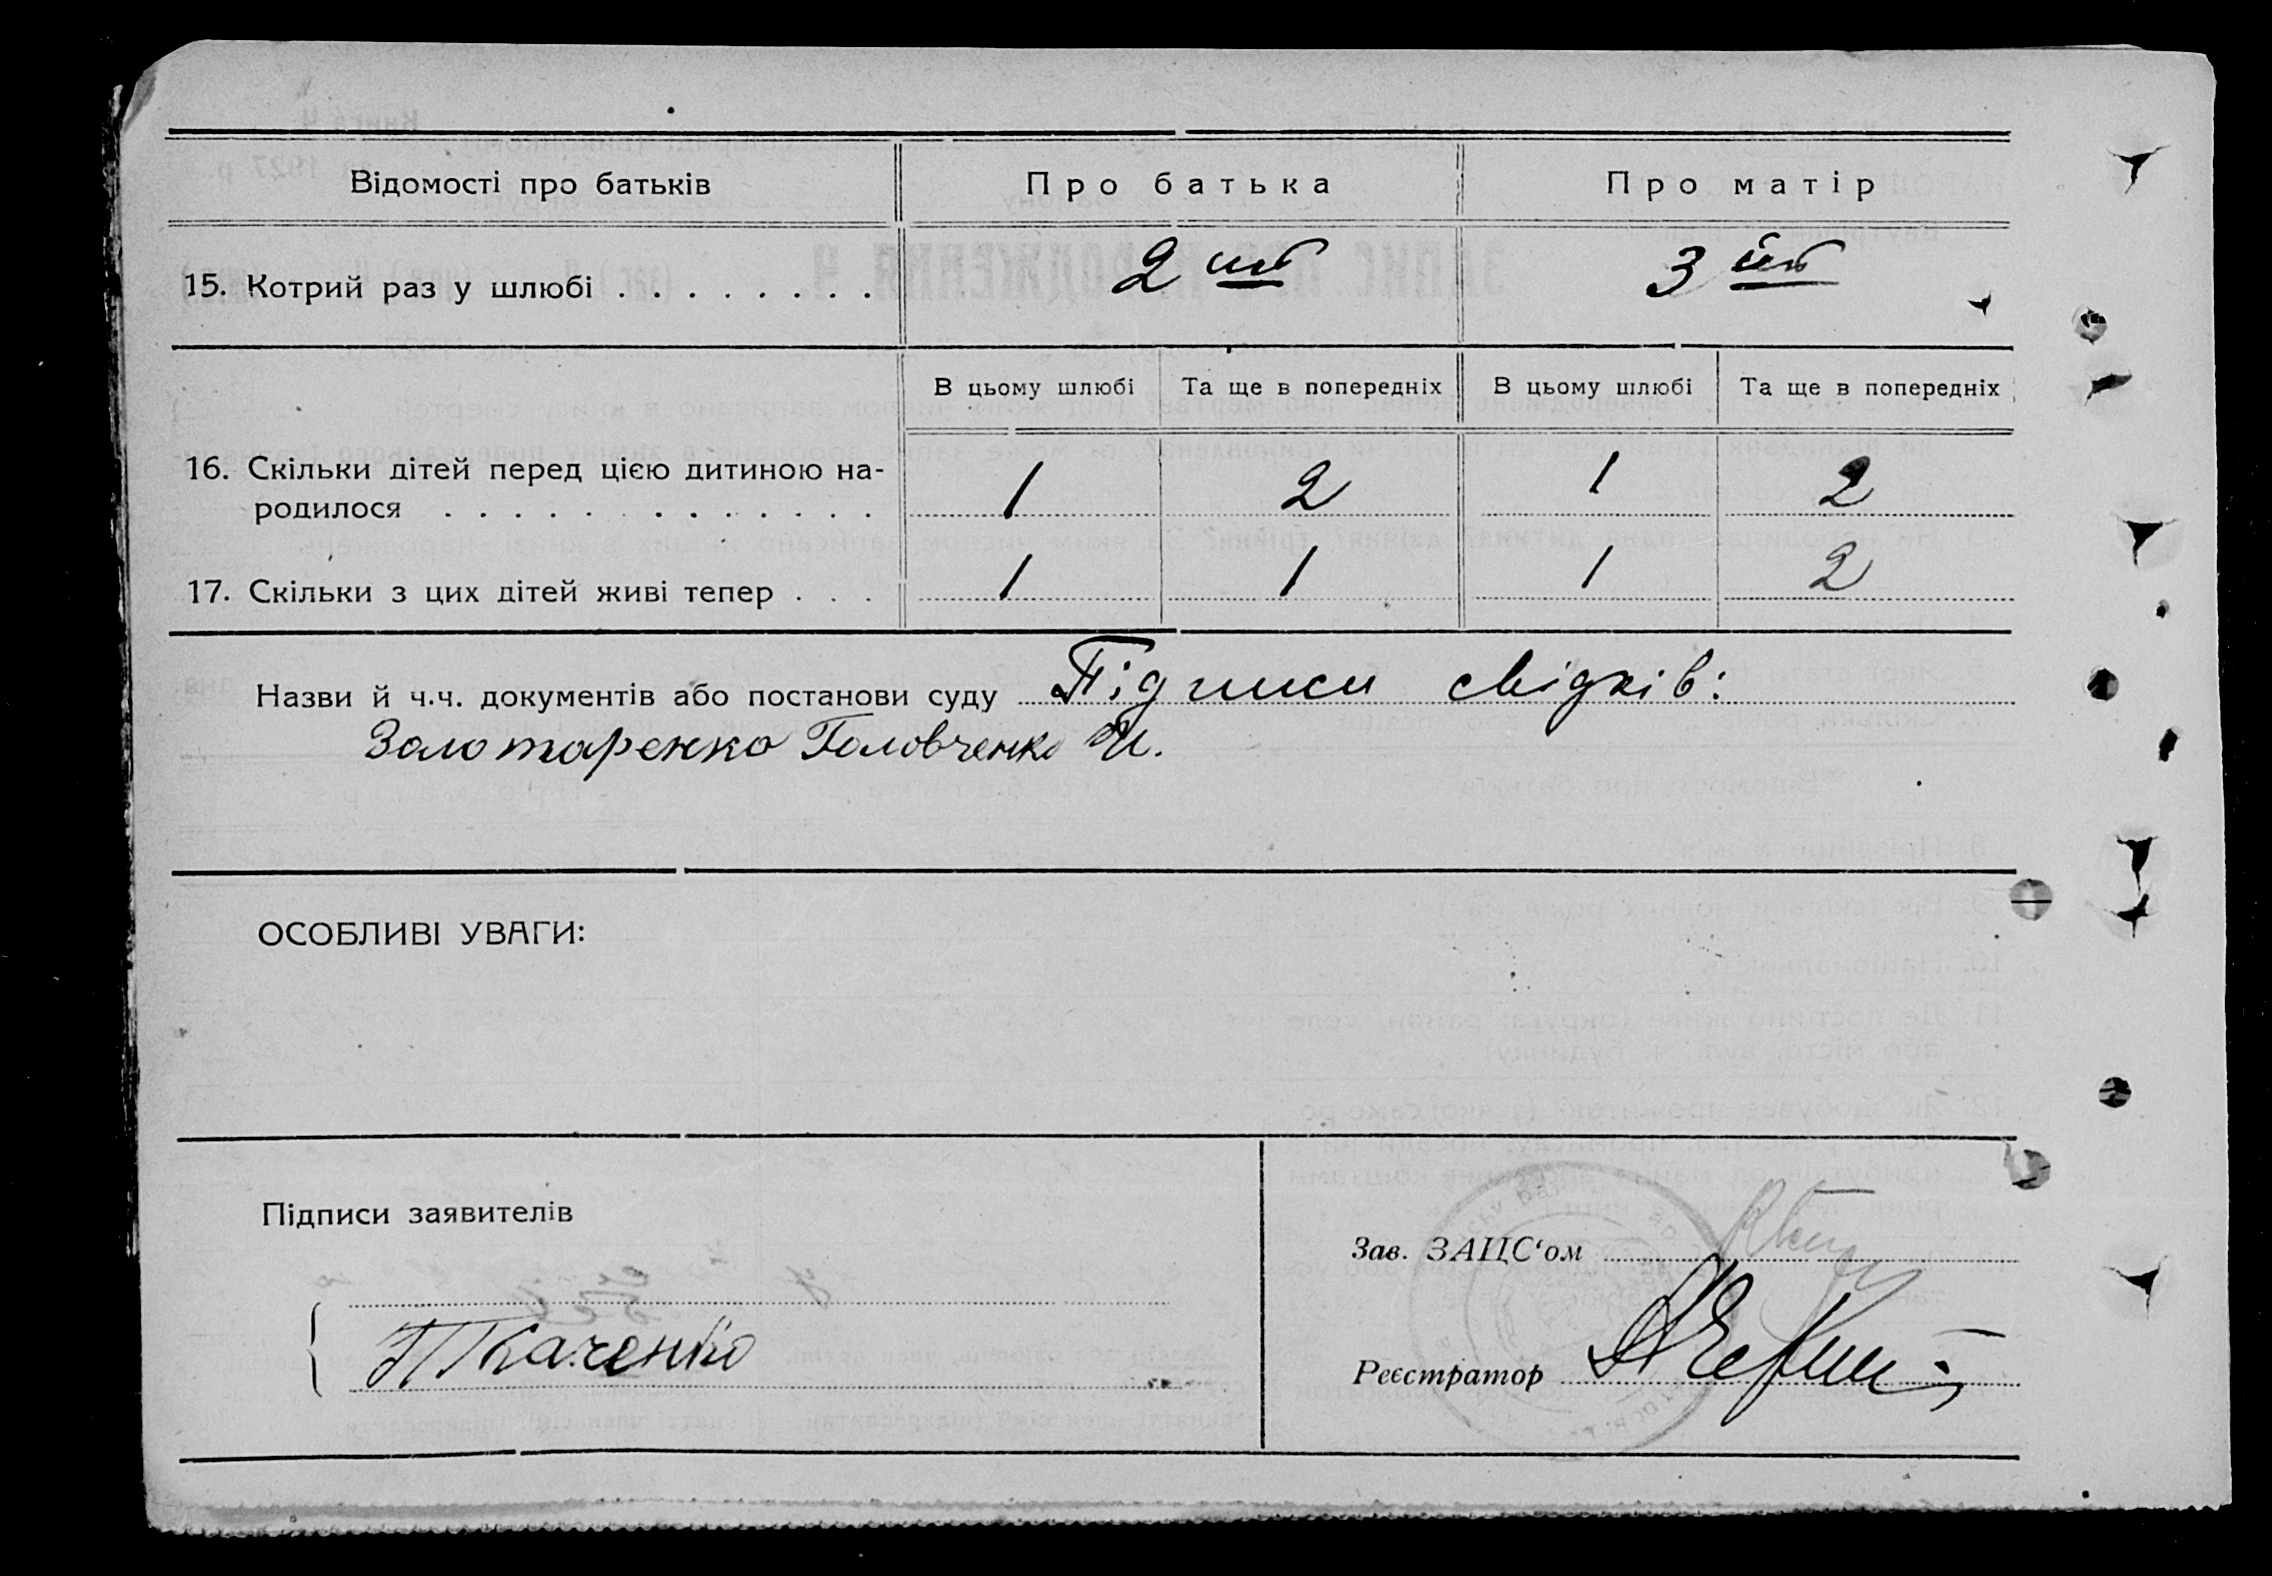 Відомості про батьків Про батька Про матір
15. Котрий раз у шлюбі . . . . . . . . 2 ий 3 ій
В цьому шлюбі Та ще в попередніх В цьому шлюбі Та ще в попередніх
16. Скільки дітей перед цією дитиною на-
родилося . . . . . . . . . . . . . 1 2 1 2
17. Скільки з цих дітей живі тепер . . . 1 1 1 2
Назви й ч.ч. документів або постанови суду Підписи свідків:
Золотаренко Головченко И.
ОСОБЛИВІ УВАГИ:
Підписи заявителів
Ткаченко
Зав. ЗАЦС‘ом
Реєстратор